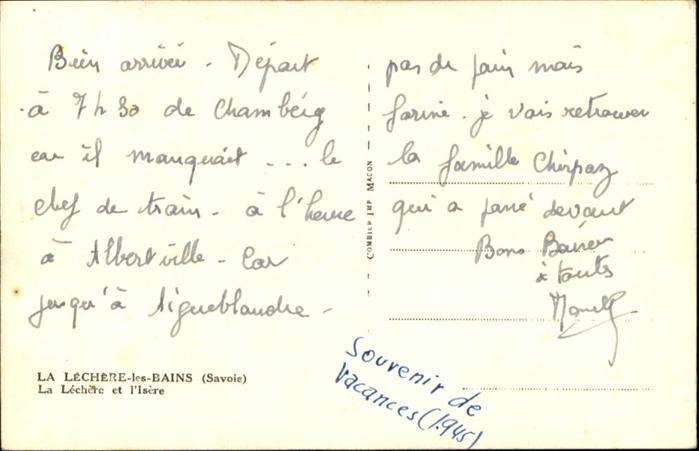 Bien arrivée - Départ
à 7h30 de Chambéry
car il manquait ... le
chef de train - à l'heure
à Albertville - Car
jusqu'à Aigueblanche -
pas de pain mais
farine. je vais retrouver
la famille
qui a passé devant
Bons Baisers
à toutes
COMBIER IMP. MACON
LA LÉCHÈRE-les-BAINS (Savoie)
La Léchère et l'Isère
Souvenir de
Vacances (1945)